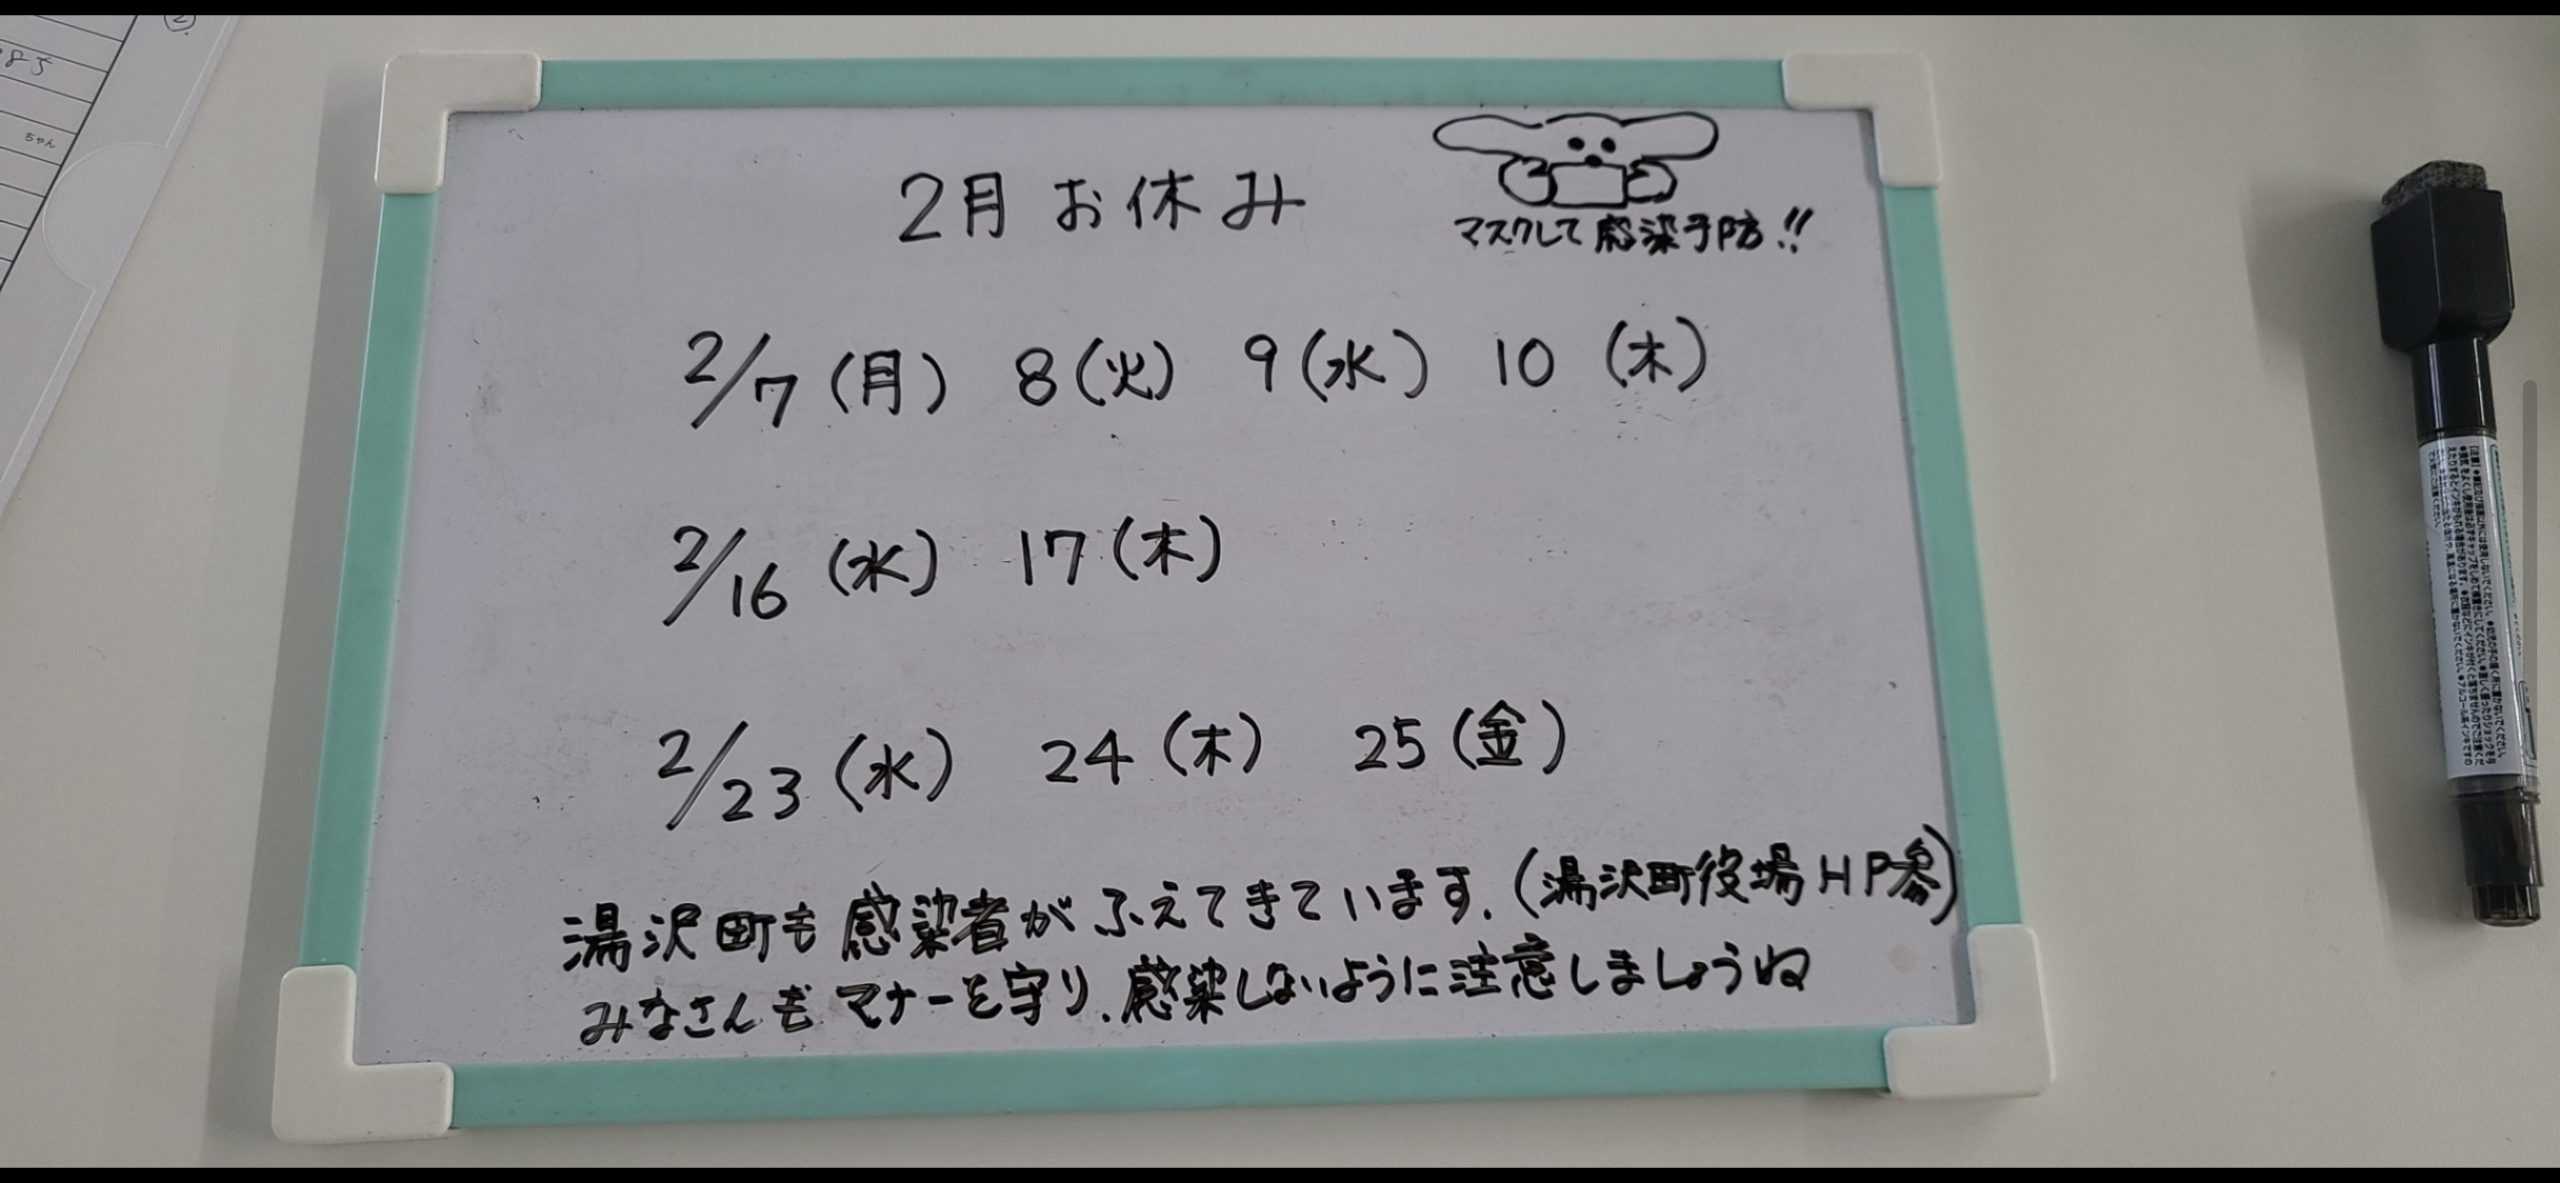 2月 お休み
マスクして感染予防!!
2/7(月) 8(火) 9(水) 10(木)
2/16(水) 17(木)
2/23(水) 24(木) 25(金)
湯沢町も感染者がふえてきています.(湯沢町役場HP参)
みなさんもマナーを守り、感染しないように注意しましょうね
②
85
ちゃん